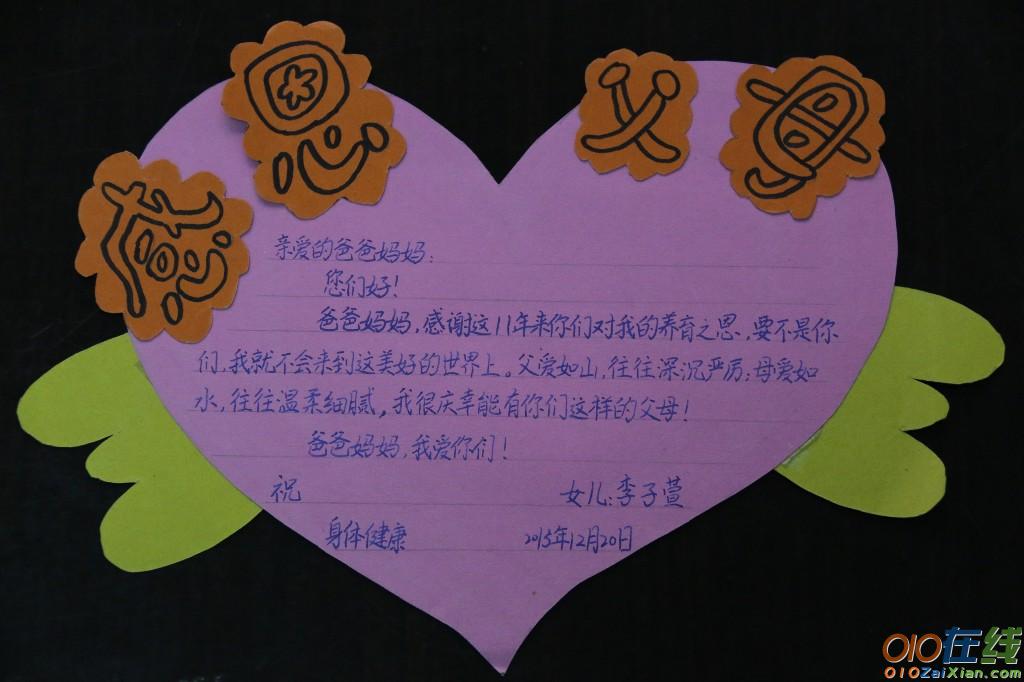 感恩父母
亲爱的爸爸妈妈:
您们好!
爸爸妈妈,感谢这11年来你们对我的养育之恩,要不是你
们,我就不会来到这美好的世界上。父爱如山,往往深沉严厉;母爱如
水,往往温柔细腻,我很庆幸能有你们这样的父母!
爸爸妈妈,我爱你们!
祝 女儿:李子萱
身体健康 2015年12月20日
010在线
010ZaiXian.com